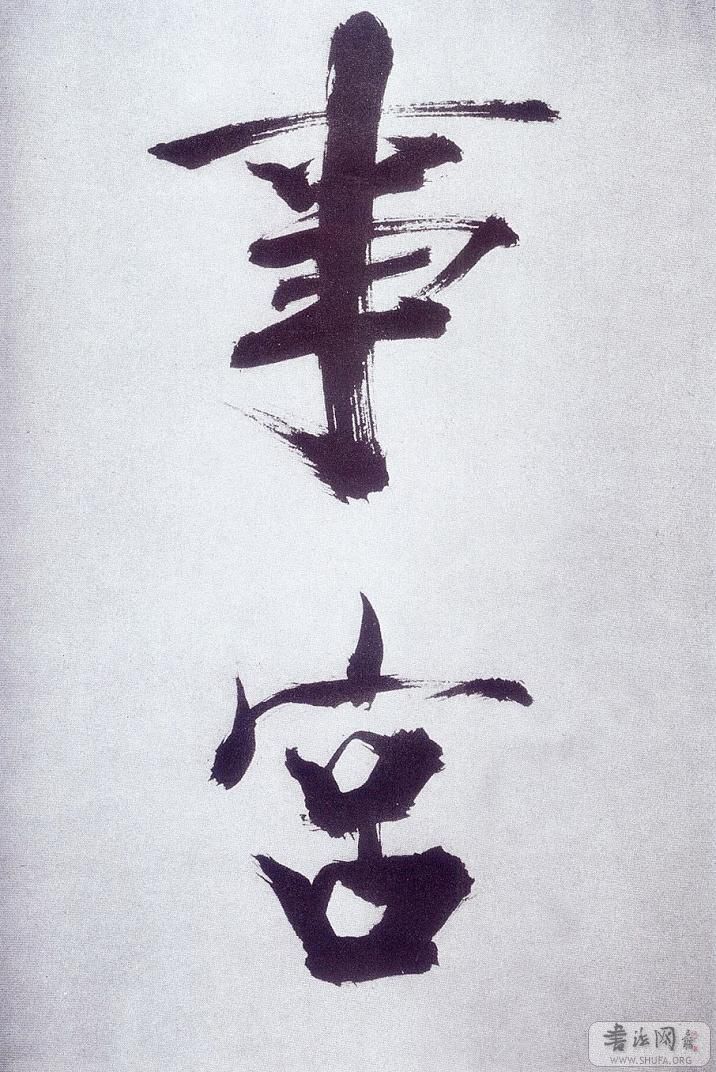 事
宮
书法网
WWW.SHUFA.ORG